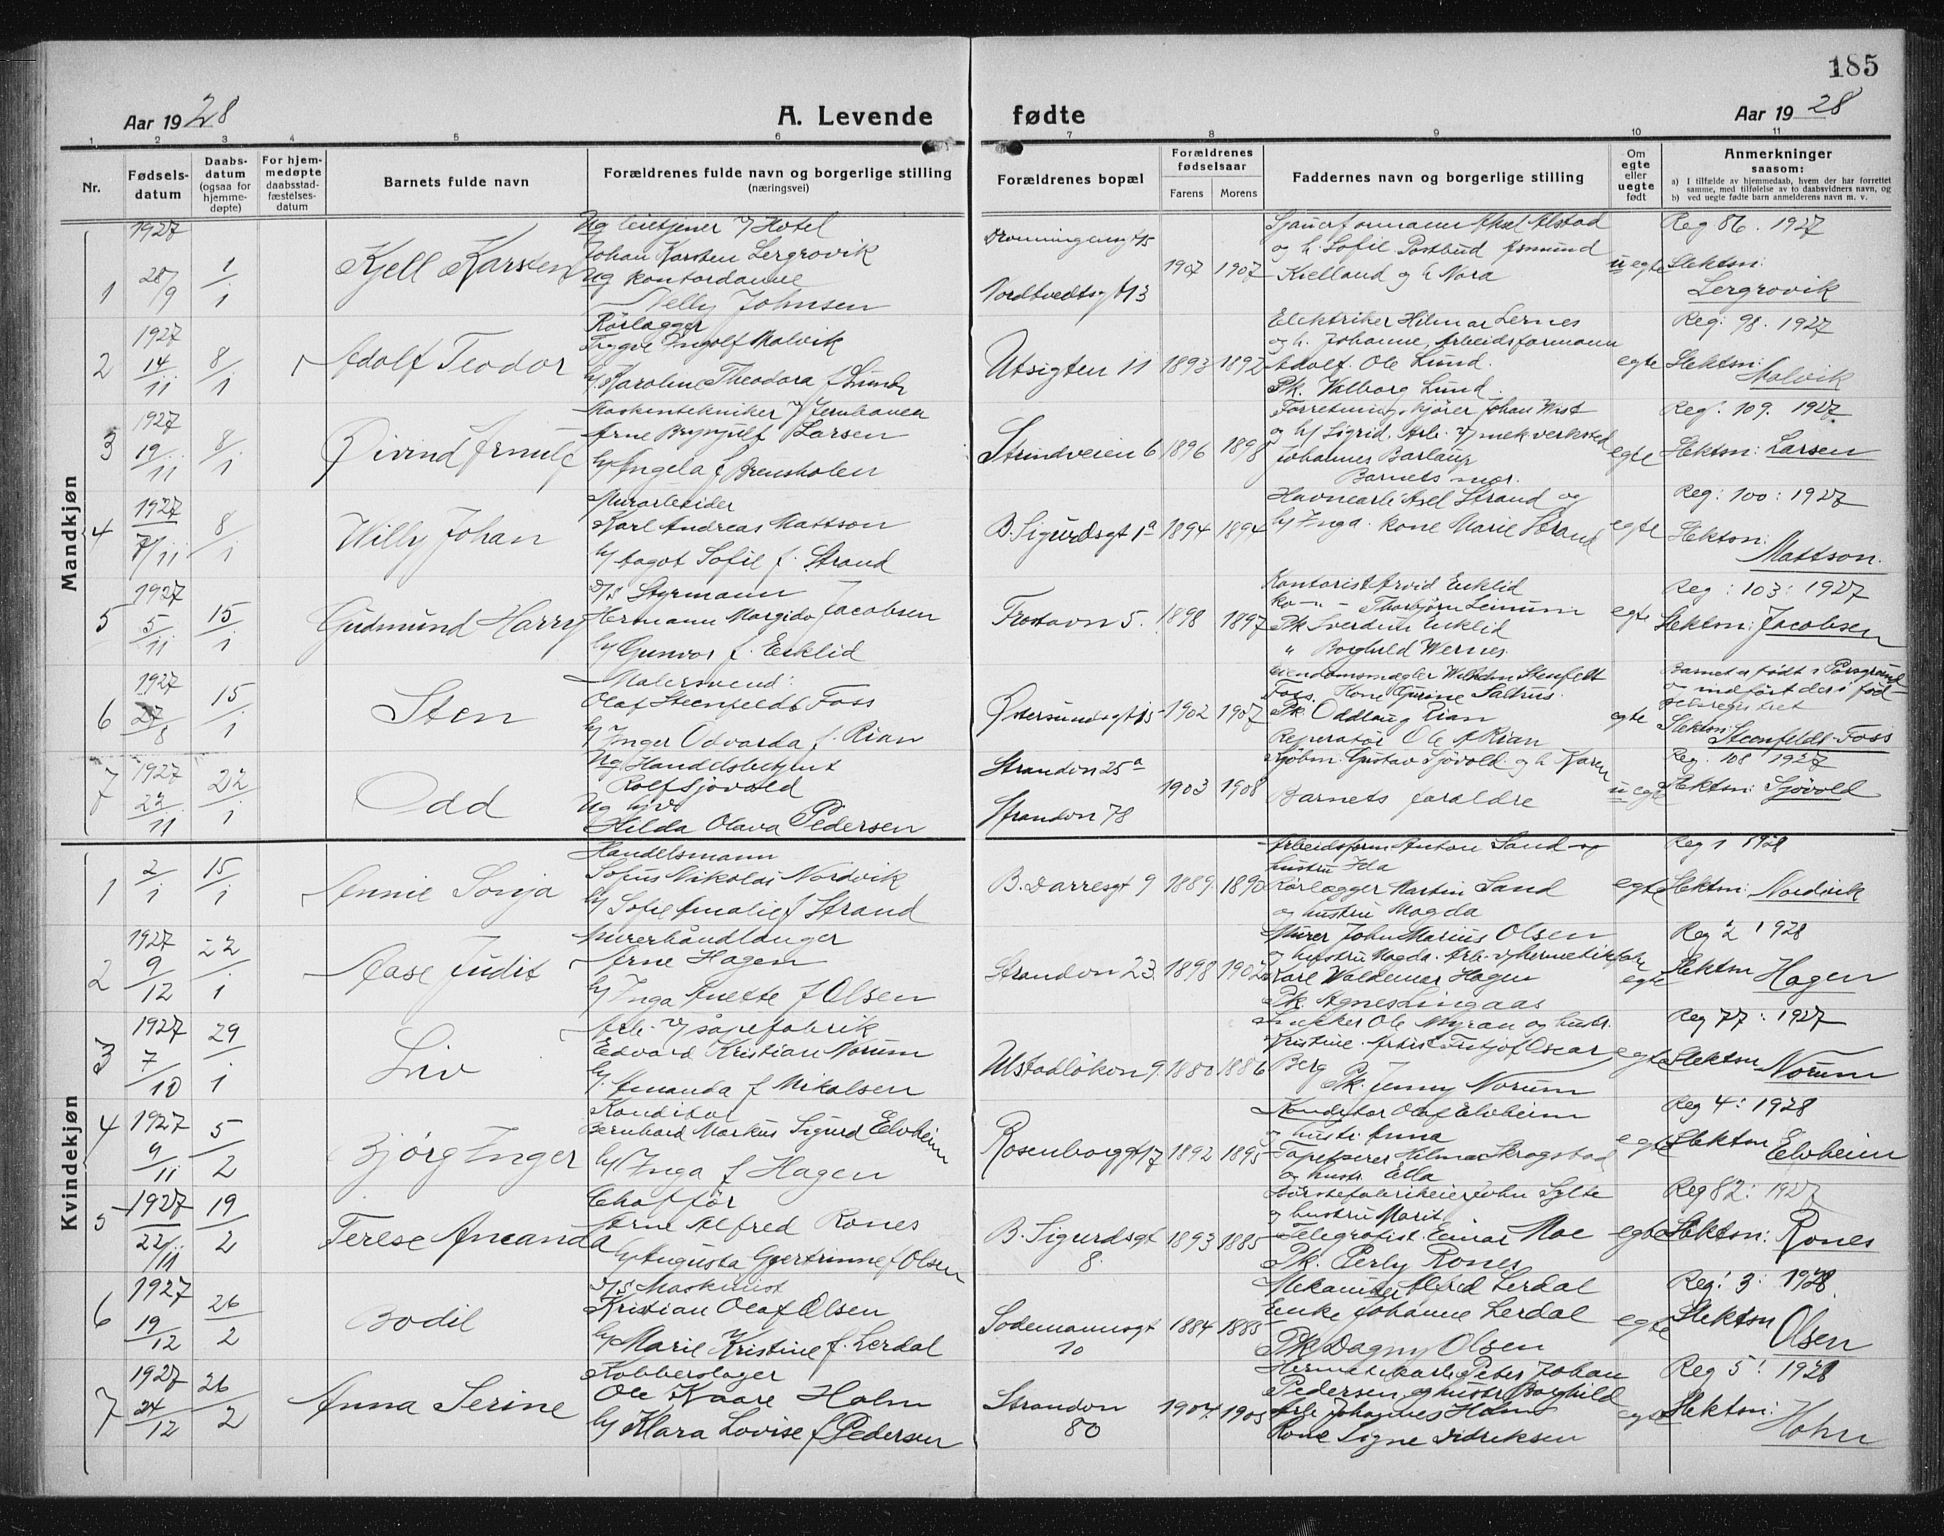 185
Aar 1928
A. Levende fødte
Aar 1928
1 2 3 4 5 6 7 8 9 10 11
Nr.
Fødsels-
datum
Daabs-
datum
(ogsaa for
hjemme-
døpte)
For hjem-
medøpte
daabsstad-
fæstelses-
datum
Barnets fulde navn
Forældrenes fulde navn og borgerlige stilling
(næringsvei)
Forældrenes bopæl
Forældrenes
fødselsaar
Farens Morens
Faddernes navn og borgerlige stilling
Om
egte
eller
uegte
født
Anmerkninger
saasom:
a) I tilfælde av hjemmedaab, hvem der har forrettet
samme, med tilføielse av to daabsvidners navn, og
b) ved uegte fødte barn anmelderens navn m. v.
Mandkjøn
1
1927
28/9
1/1
Kjell Karsten
Ug Hotel
Johan Karsten Lergrovik
Ug kontordame
Nelly Johnsen
Dronningensgt 15
Nordtvedtsgt 13
1907 1907
Akel Alstad
og h. Sofie Postbud Asmund
Kielland og h Nora
uegte
Reg 86. 1927
Slektsn:
Lergrovik
2
1927
14/11
8/1
Adolf Teodor
Rørlægger
Trygve Ingolf Malvik
h/ Karoline Theodora f. Lund
Utsigten 11
1893 1892
Elektriker Hilmar Lernes
og h. Johanne, Arbeidsformann
Adolf. Ole Lund.
Pk. Valborg Lund.
egte
Reg: 98. 1927
Slektsn:
Malvik
3
1927
19/11
8/1
Øivind Arnulf
Maskintekniker v/ Jernbanen
Arne Brynjulf Larsen
h/ Angela f Brensholen
Strindveien 6
1896 1898
Forretningskjører Johan Wist
og h/ Sigrid, Arb. v/ mek verksted
Johannes Barlaup
Barnets mor.
egte
Reg: 109. 1927
Slektsn: Larsen
4
1927
7/11
8/1
Willy Johan
Murarbeider
Karl Andreas Mattson
h/ Aagot Sofie f. Strand
B. Sigurdsgt 1a
1894 1894
Havnearb. Axel Strand og
h/ Inga. kone Marie Strand
egte
Reg: 100: 1927
Slektsn:
Mattson.
5
1927
5/11
15/1
Gudmund Harry
D/S Styrmann
Hermann Margido Jacobsen
h/ Gunvor f. Eeklid
Frostavn 5.
1898 1897
Kontorist Arvid Eeklid
Thorbjørn Leinum
Pk Sverdrup Eeklid
" Borghild Wernes.
egte
Reg: 103: 1927
Slektsn: Jacobsen
6
1927
27/8
15/1
Sten
Malersvend:
Olaf Steenfeldt Foss
h/ Inger Odvarda f. Rian
Østersundsgt 15
1902 1907
Eiendomsmægler Wilhelm Stenfelt
Foss. Kone Gurine Saltrus.
Pk. Oddlaug Rian
Reperatør Ole A Rian
egte
Barnet er født i Porsgrund
og indført der i fød-
selsregistret
Slektsn:
Steenfeldt-Foss
7
1927
22/11
22/1
Odd
Ug Handelsbetjent
Rolf Sjøvold
Ug
Hilda Olava Pedersen
Strandvn 25a
Strandvn 78
1903 1908
Sjøbm: Gustav Sjøvold og h Karen
Barnets foraldre
uegte
Reg. 108 1927
Slektsn: Sjøvold
Kvindekjøn
1
2/1
15/1
Annie Sonja
Handelsmann
Sofus Nikolai Nordvik
h/ Sofie Amalie f Strand
B. Darresgt 9
1889 1890
Arbeidsform Anton Sand og
hustru Ida
Rørlægger Martin Sand
og hustru Magda
egte
Reg 1 1928
Slektsn: Nordvik
2
1927
9/12
22/1
Aase Judit
Murerhåndlanger
Arne Hagen
h/ Inga Anette f Olsen
Strandvn 23.
1898 1902
Murer John Marius Olsen
og hustru Magda. Arb. v/ hermetikfabr
Karl Valdemar Hagen
Pk. Agnes Lingaas
egte
Reg 2 1928
Slektsn
Hagen
3
1927
7/10
29/1
Liv
Arb. v/ såpefabrik
Edvard Kristian Norum
h/. Amanda f Mikalsen
Ulstadløkvn 9.
1880 1886
Snekker Ole Myran og hustr.
Kristine. Fritjof Oscar
Berg
Pk. Jenny Norum
egte
Reg 77: 1927
Slektsn
Norum
4
1927
9/11
5/2
Bjørg Inger
Konditor
Bernhard Markus Sigurd Elvheim
h/ Inga f Hagen
Rosenborggt 17
1892 1895
Konditor Olaf Elvheim
og hustr. Anna
Tapetserer Hilmar Skogstad
og hustr. Ella
egte
Reg 4: 1928
Slektsn
Elvheim
5
1927
22/11
19/2
Terese Amanda
Chaffør
Arne Alfred Rones
h/ Augusta Gjertrinne f Olsen
B. Sigurdsgt
8.
1893 1885
Børstefabrikeier John Sylte
og hustru Marit
Telegrafist. Einar Moe
Pk. Perly Rones
egte
Reg 82: 1927
Slektsn: Rones
6
1927
19/12
26/2
Bodil
D/S Maskinist
Kristian Olaf Olsen
h/ Marie Kristine f. Lerdal
Sodemannsgt
10
1884 1885
Mekaniker Alfred Lerdal
Enke Johanne Lerdal
Pk Dagny Olsen
egte
Reg: 3: 1928.
Slektsn
Olsen
7
1927
24/12
26/2
Anna Serine
Kobberslager
Ole Kaare Holm
h/ Klara Lovise f Pedersen
Strandvn
80
1904 1905
Hermetikarb. Peter Johan
Pedersen og hustr Borghild
Arb Johannes Holm
Kone Signe Didriksen
egte
Reg 5: 1928
Slektsn:
Holm